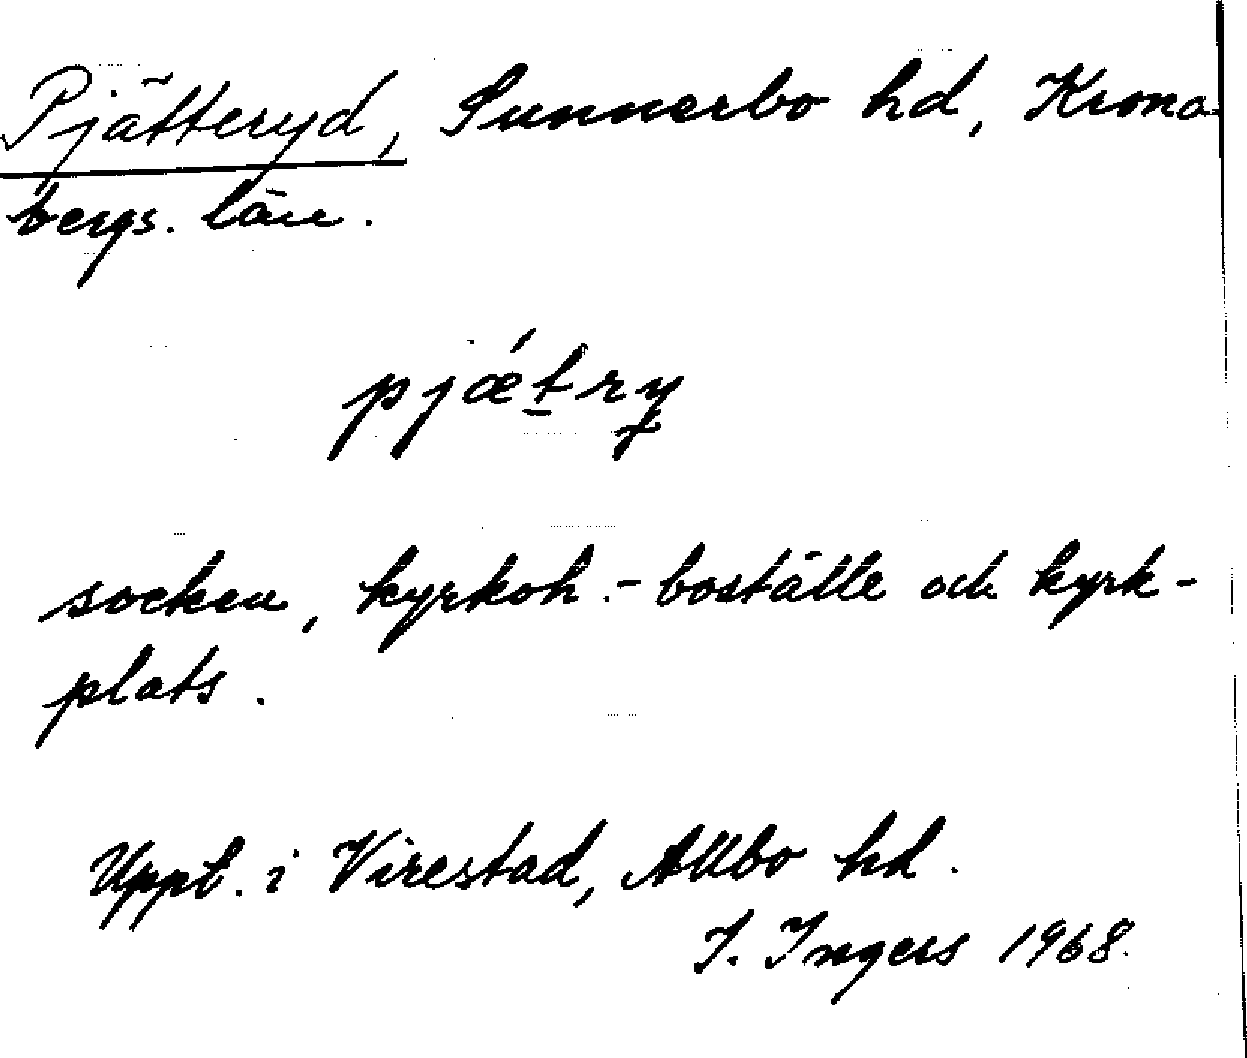 Pjätteryd, Sunnerbo hd, Krono-
bergs. län.
pjǽt̲ry
socken, kyrkoh.-boställe och kyrk-
plats.
Uppt. i Virestad, Allbo hd.
I. Ingers 1968.